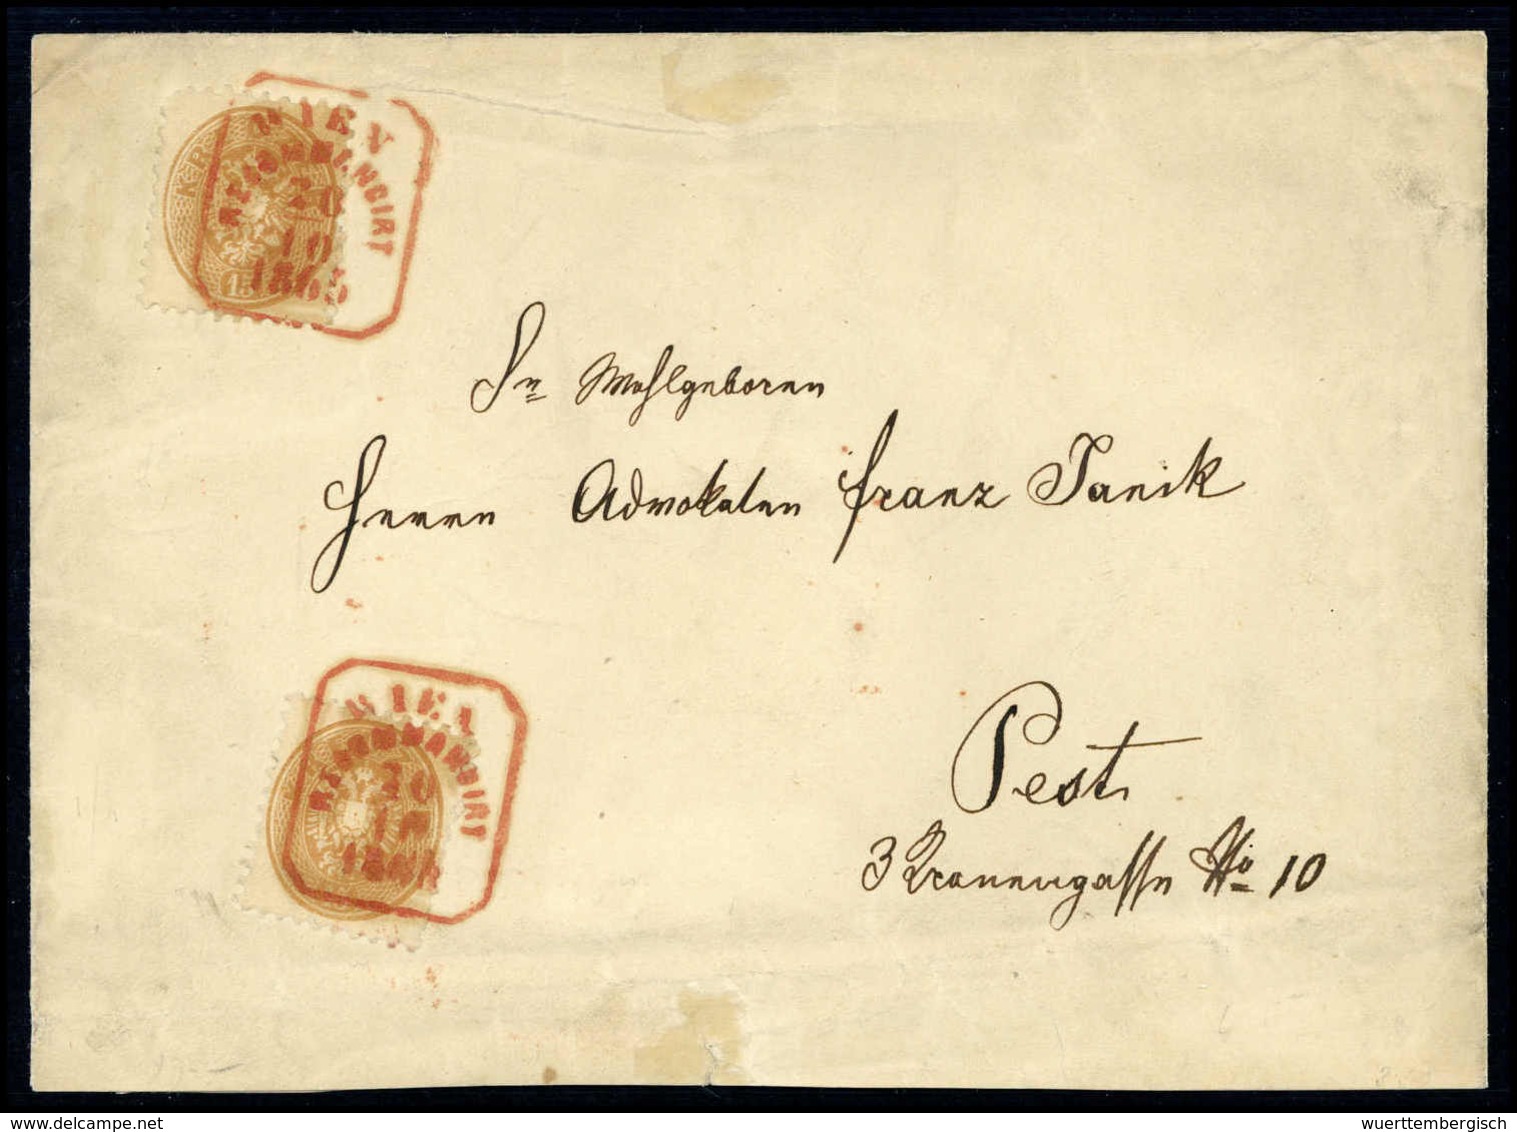 WIEN
RECOMMANDIRT
20
10
1865
KR
15
Sr Wohlgeboren
Herrn Advokaten Franz Janik
WIEN
RECOMMANDIRT
20
10
Pest
3 Kronengasse No 10
delcampe.net
wuerttembergisch